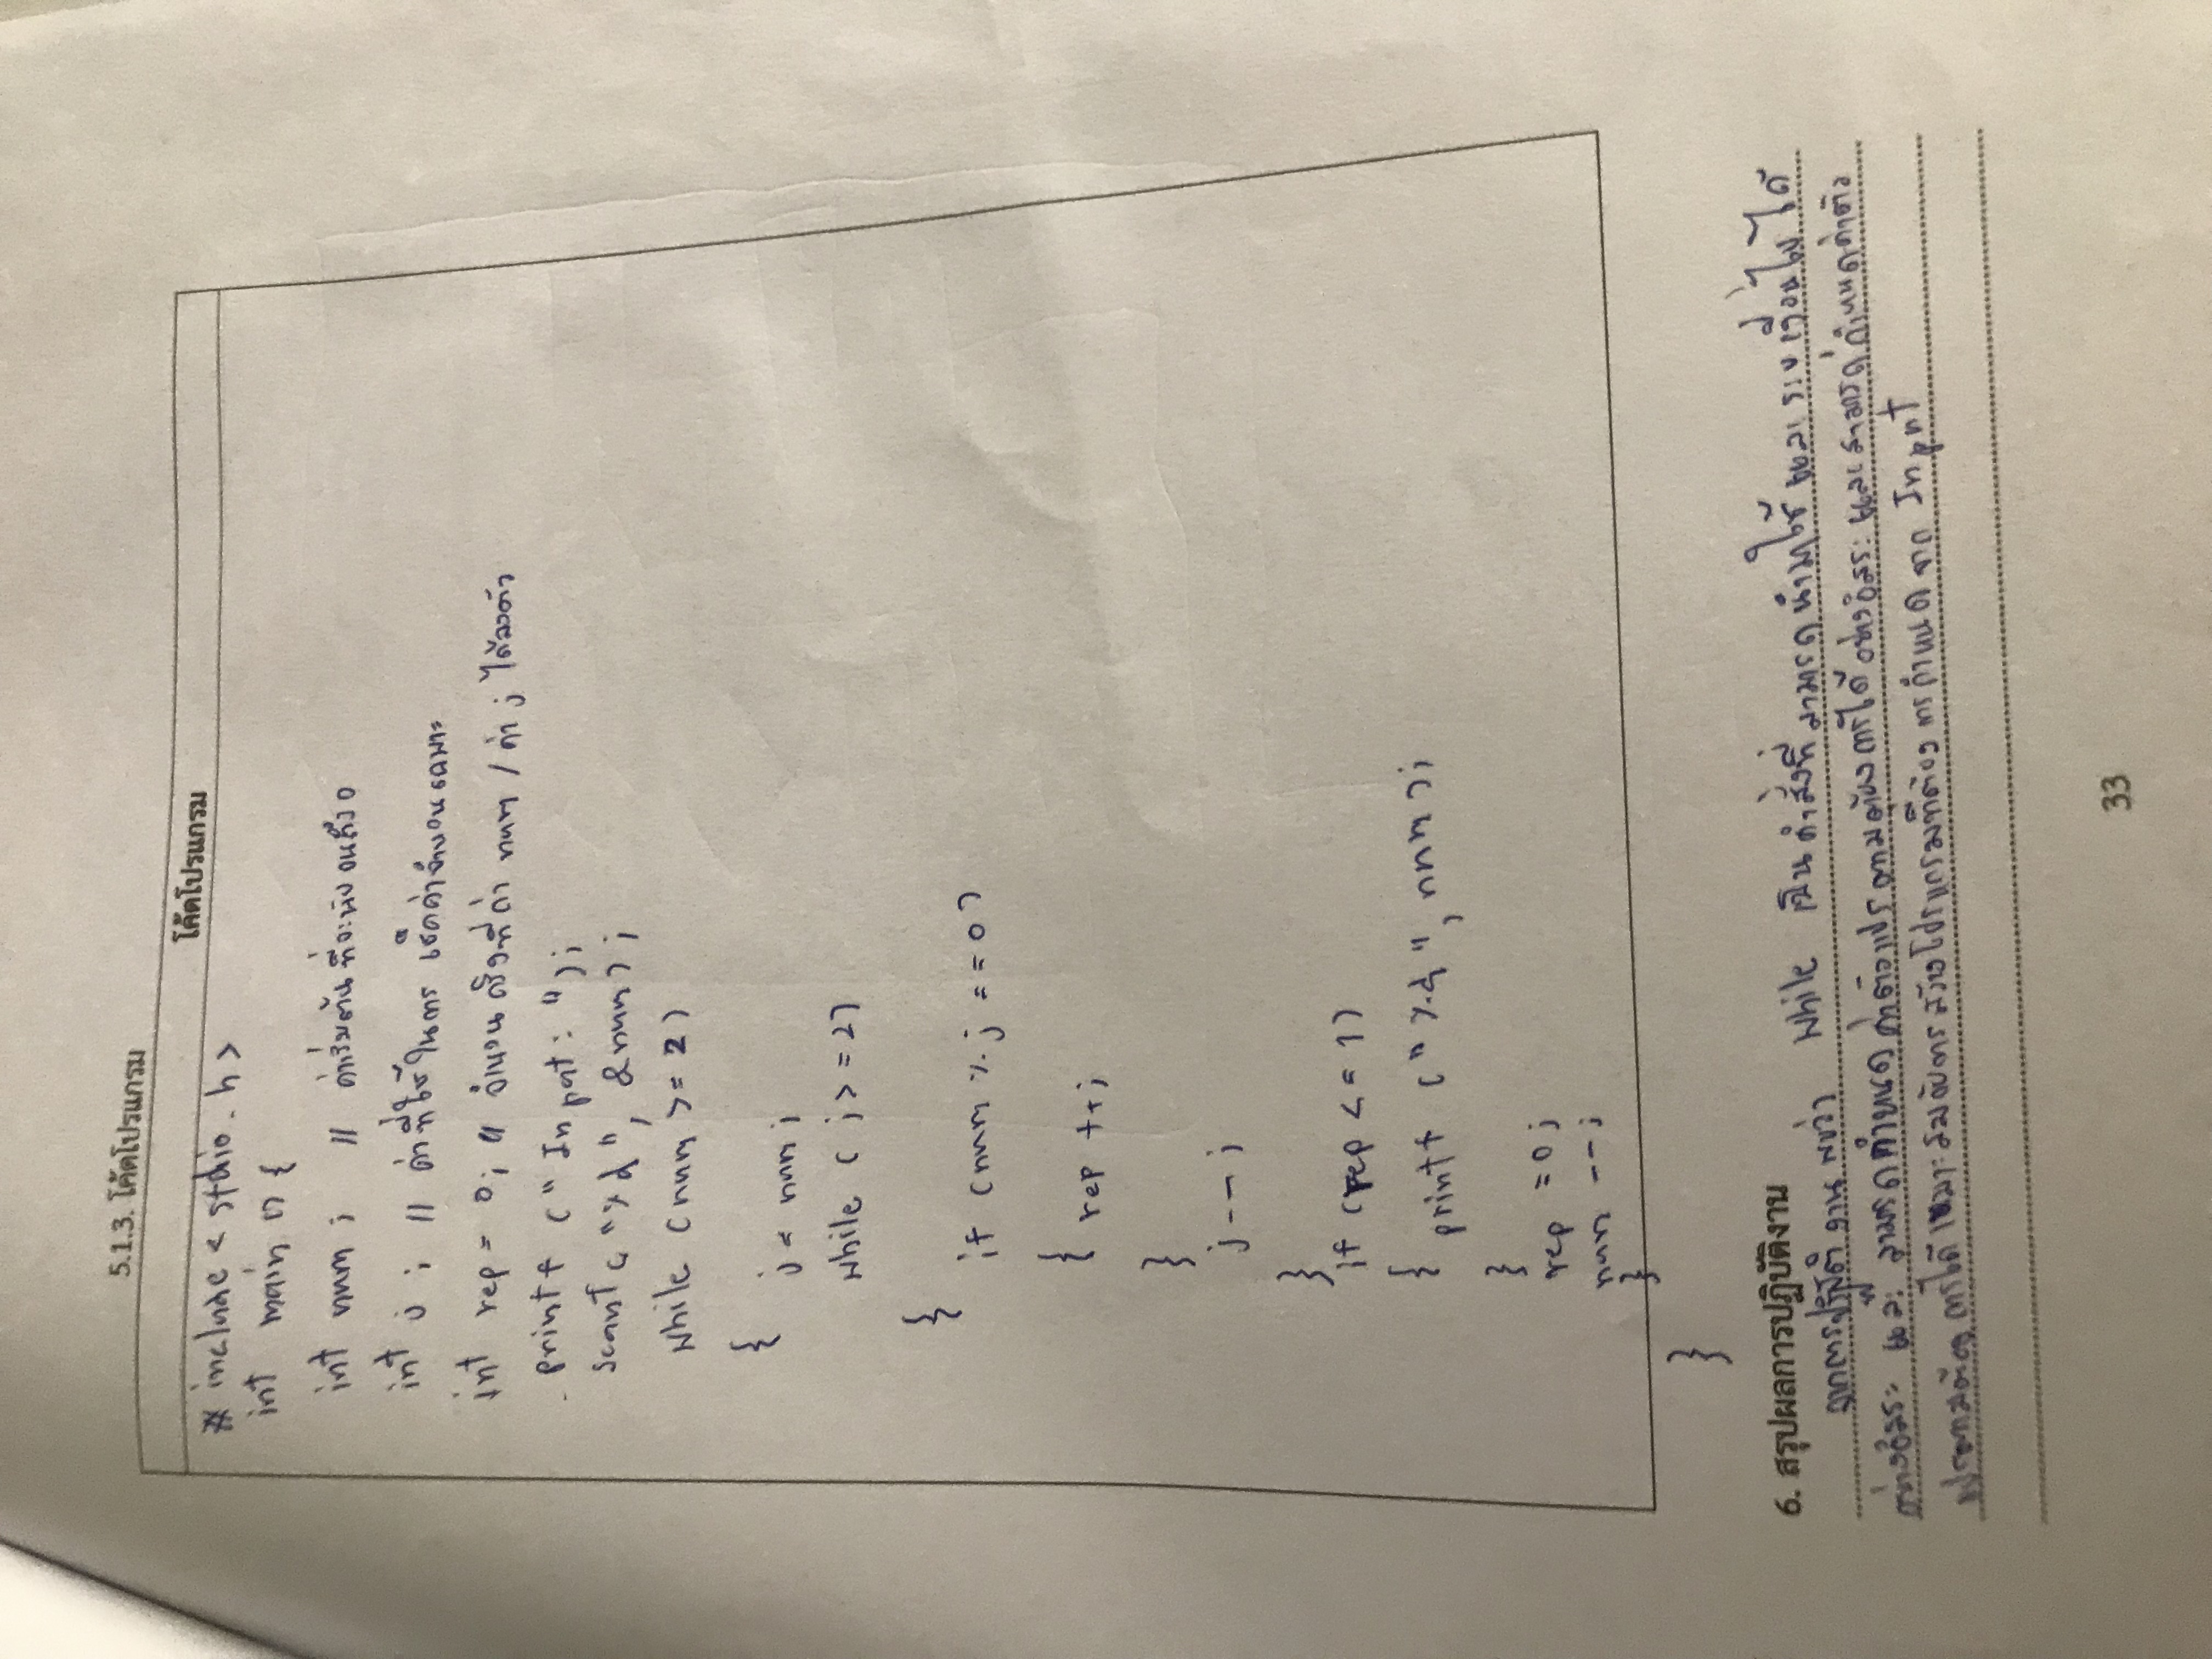 5.1.3. โค้ดโปรแกรม
โค้ดโปรแกรม
# include < stdio.h >
int main () {
int num ; // ค่าเริ่มต้นที่จะนับจนถึง 0
int j ; // ค่าที่ใช้ในการ เช็คค่าจำนวนเฉพาะ
int rep = 0; // จำนวนครั้งที่ค่า num / ค่า j ได้ลงตัว
printf (" Input: ");
scanf ("%d", &num);
while (num >= 2)
{
j = num ;
while ( j >= 2)
{
if (num % j == 0)
{ rep ++;
}
j -- ;
}
if (rep <= 1)
{ printf ("%d", num );
}
rep = 0;
num -- ;
}
}
6. สรุปผลการปฏิบัติงาน
จากการปฏิบัติงาน พบว่า while เป็นคำสั่งที่สามารถนำมาใช้ และระบุเงื่อนไขได้
อย่างอิสระ และ สามารถกำหนดค่าตัวแปรตามต้องการได้อย่างอิสระ และสามารถกำหนดค่าตัว
แปรตามต้องการได้ เหมาะสมกับการสร้างโปรแกรมที่ต้องการกำหนดจาก Input
33